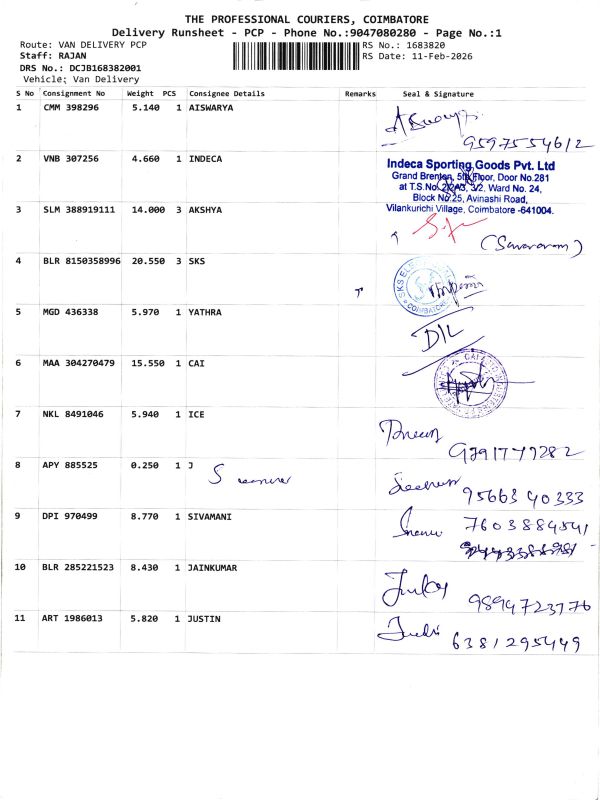 THE PROFESSIONAL COURIERS, COIMBATORE
Delivery Runsheet - PCP - Phone No.:9047080280 - Page No.:1
Route: VAN DELIVERY PCP
Staff: RAJAN
DRS No.: DCJB168382001
Vehicle: Van Delivery
RS No.: 1683820
RS Date: 11-Feb-2026
S No Consignment No Weight PCS Consignee Details Remarks Seal & Signature
1 CMM 398296 5.140 1 AISWARYA
9597554612
2 VNB 307256 4.660 1 INDECA
Indeca Sporting Goods Pvt. Ltd
Grand Brenton, 5th Floor, Door No.281
at T.S.No. 3/2, Ward No. 24,
Block No.25, Avinashi Road,
Vilankurichi Village, Coimbatore -641004.
3 SLM 388919111 14.000 3 AKSHYA
4 BLR 8150358996 20.550 3 SKS
5 MGD 436338 5.970 1 YATHRA
D/L
6 MAA 304270479 15.550 1 CAI
7 NKL 8491046 5.940 1 ICE
9791779282
8 APY 885525 0.250 1 J
9566340333
9 DPI 970499 8.770 1 SIVAMANI
7603884541
10 BLR 285221523 8.430 1 JAINKUMAR
9894723776
11 ART 1986013 5.820 1 JUSTIN
6381295449